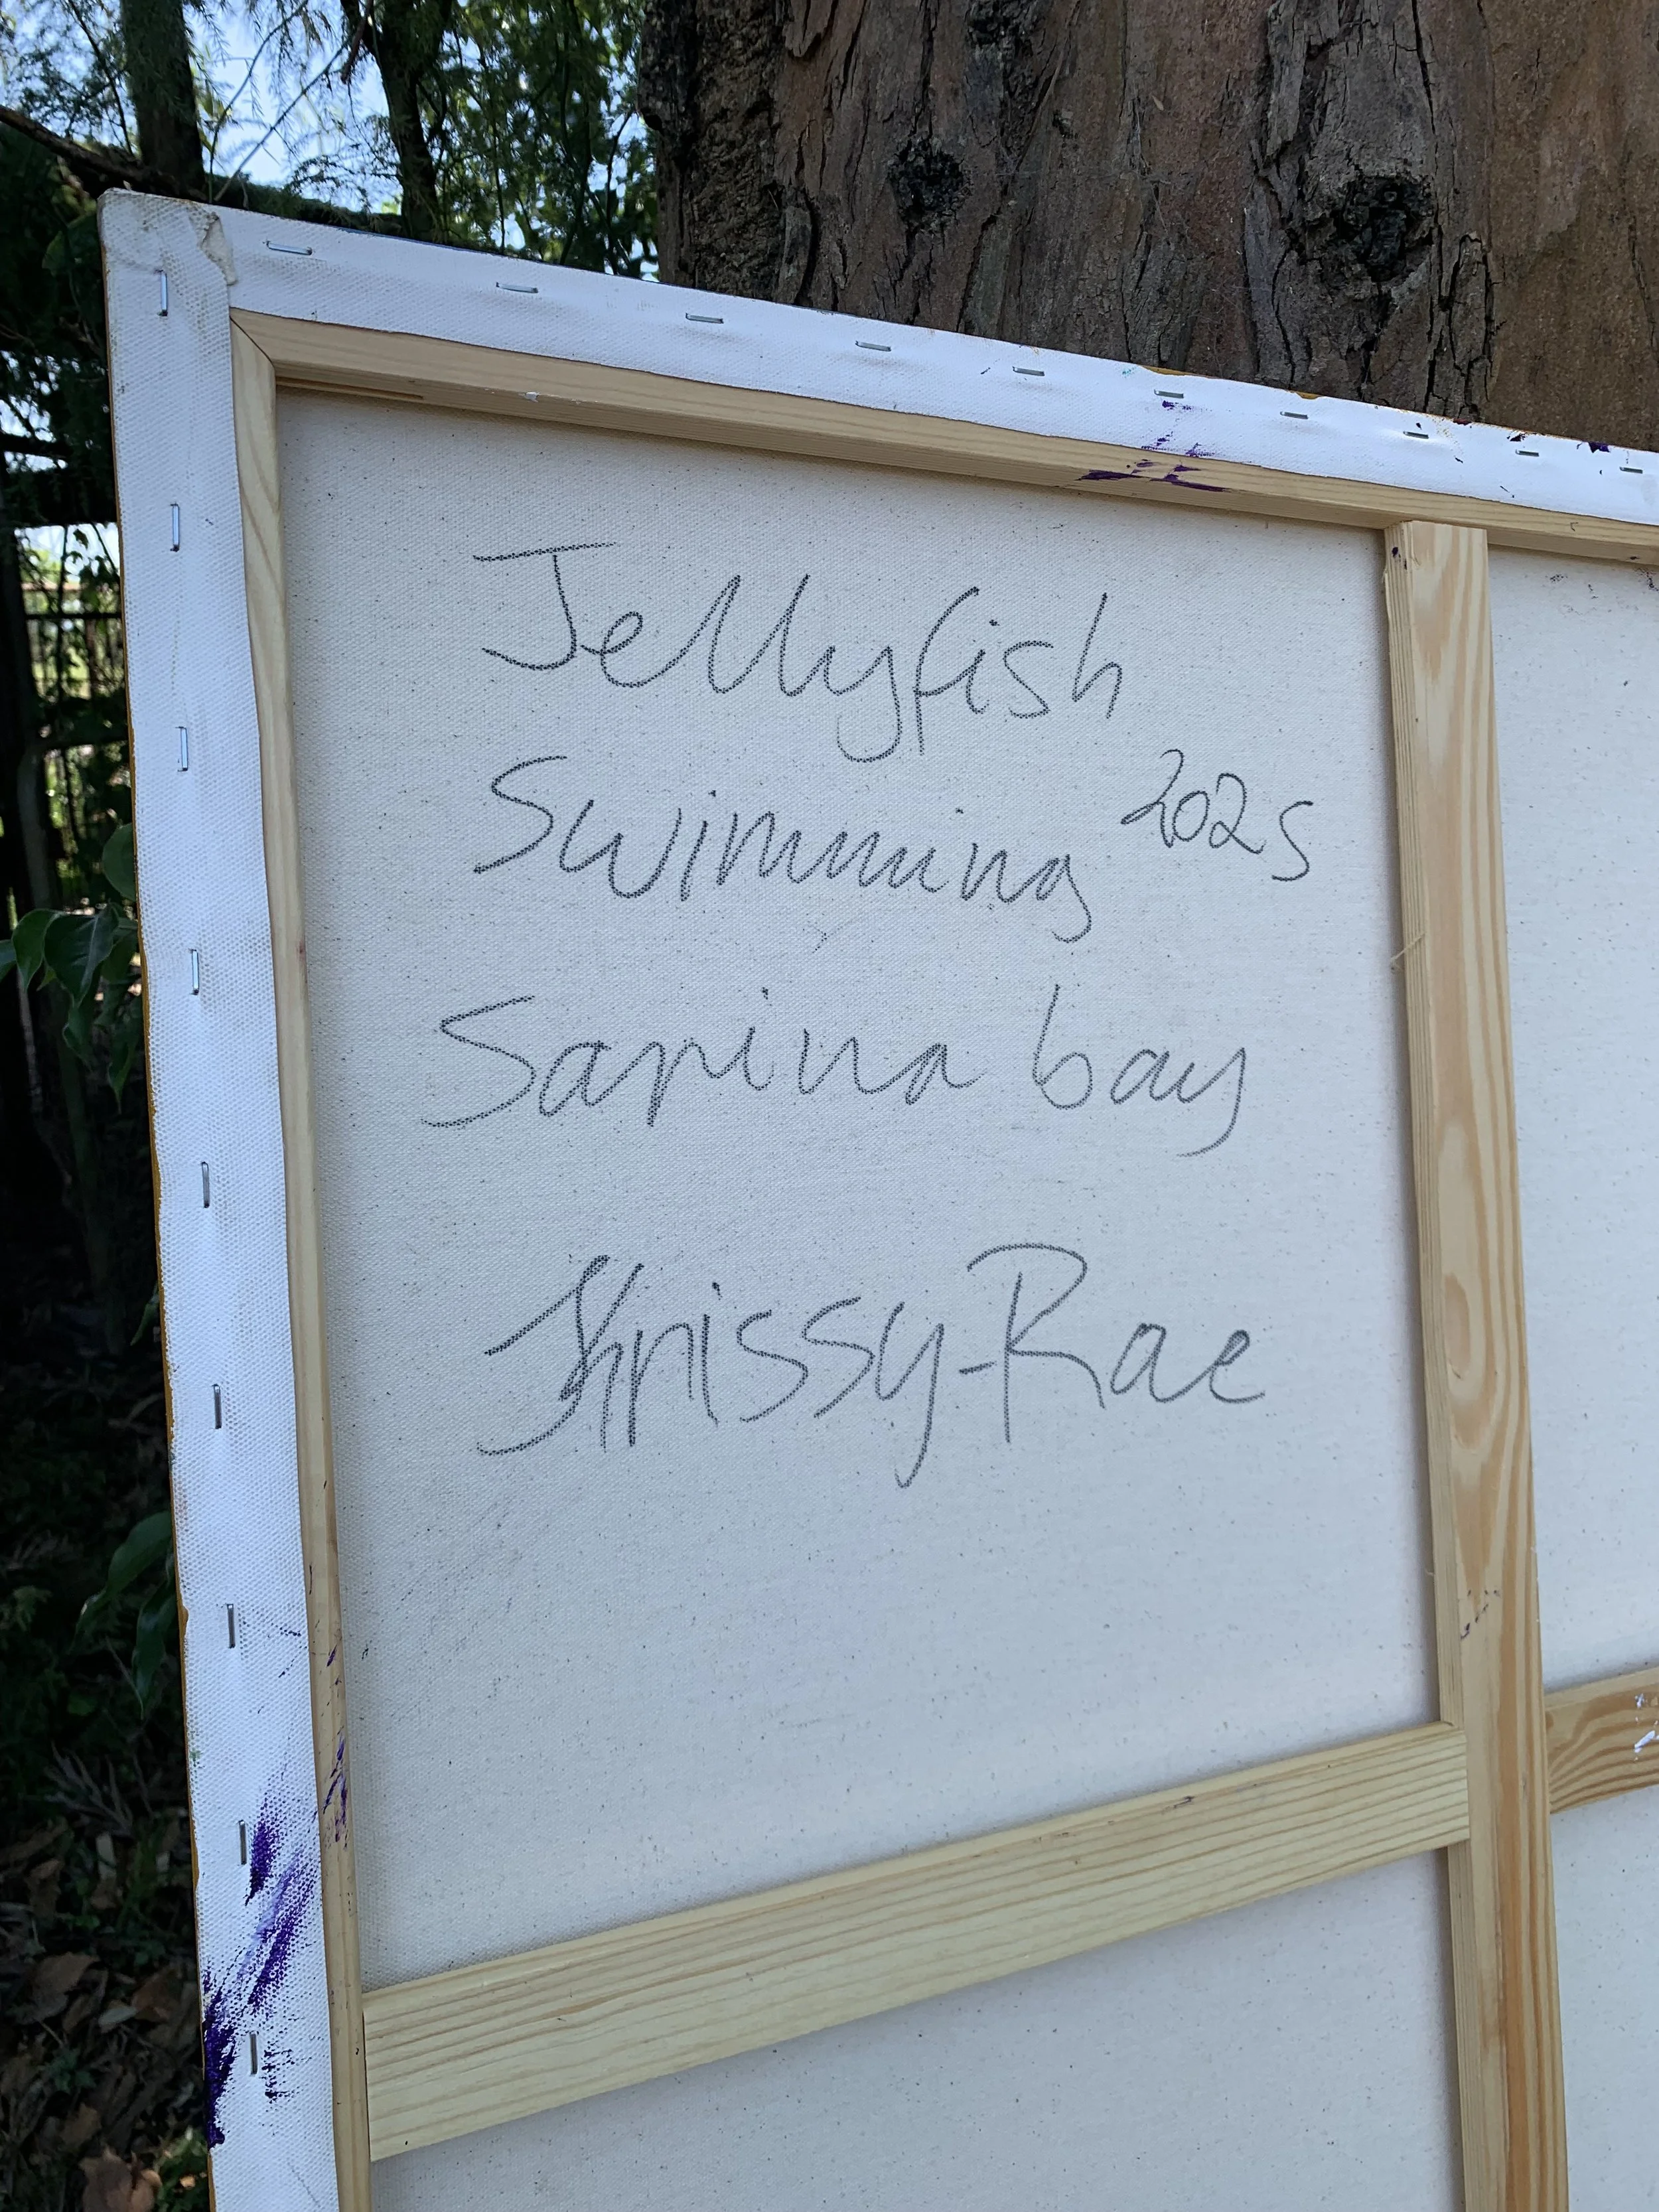 Jellyfish
Swimming 2025
Sarina bay
Khrissy-Rae